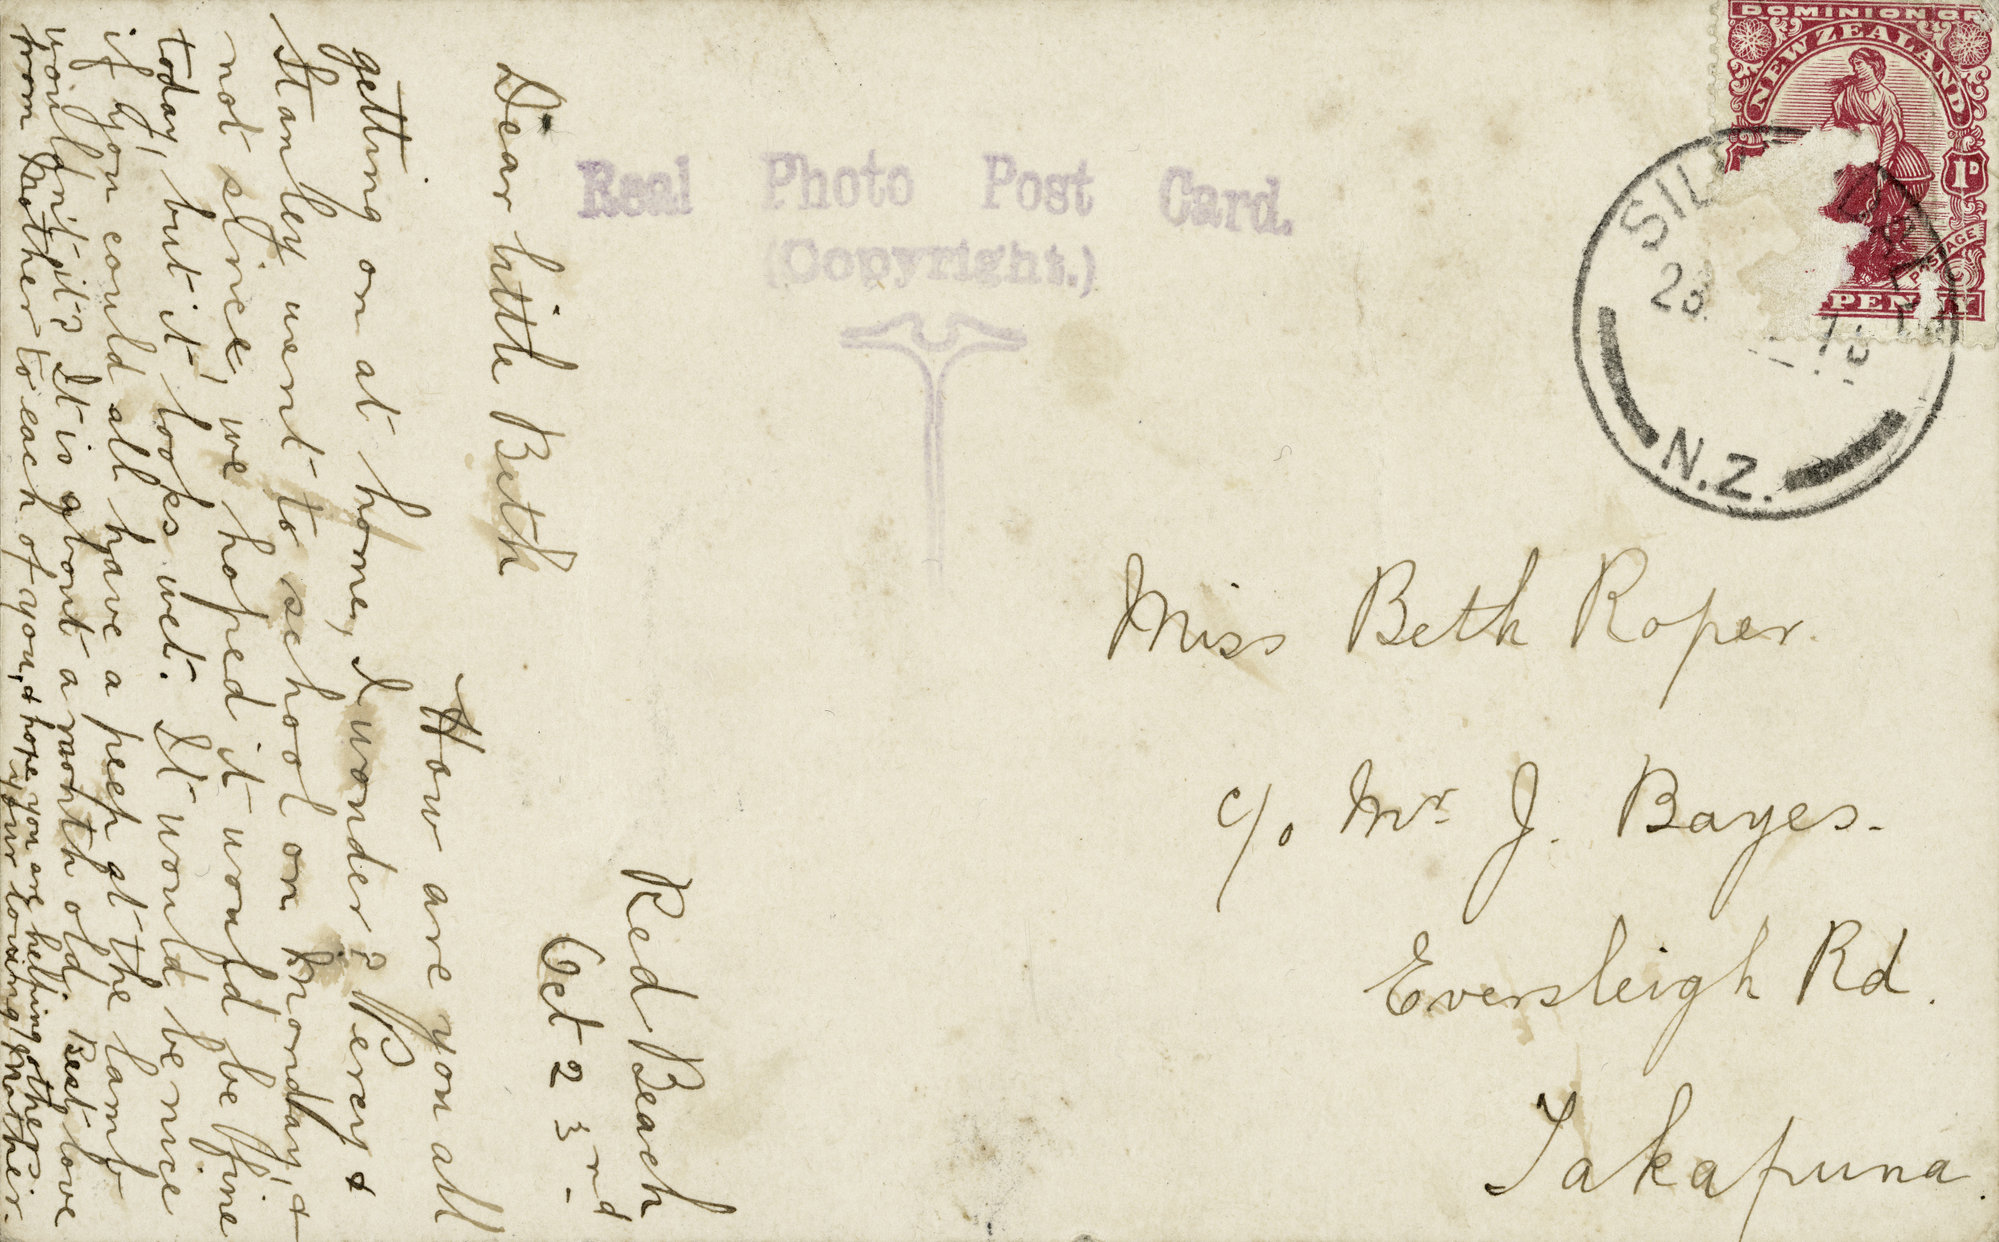 Red Beach
Oct 23rd.
Dear little Beth
How are you all
getting on at home, I wonder? Percy &
Stanley went to school on Monday, &
not since, we hoped it would be fine
today, but it looks wet. It would be nice
if you could all have a peep at the lamb
wouldn't it? It is about a month old. Best love
from Mother to each of you, & hope you are helping other
your loving Mother.
Real Photo Post Card.
(Copyright.)
DOMINION OF
NEW ZEALAND
1D
POSTAGE
PENNY
N.Z.
Miss Beth Roper.
c/o Mr J. Bayes.
Eversleigh Rd.
Takapuna.